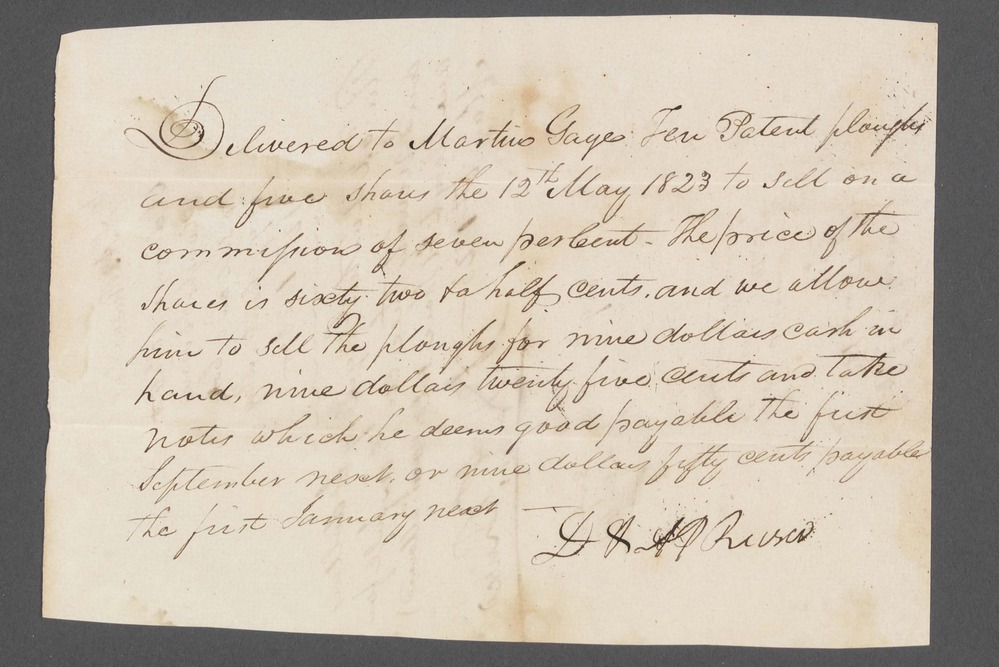 Delivered to Martin Gage Ten Patent ploughs
and five shares the 12th May 1823 to sell on a
commission of seven per Cent - The price of the
shares is sixty two & a half cents. and we allow
him to sell the ploughs for nine dollars cash in
hand, nine dollars twenty five cents and take
notes which he deems good payable the first
September next. or nine dollars fifty cents payable
the first January next —
D & A P